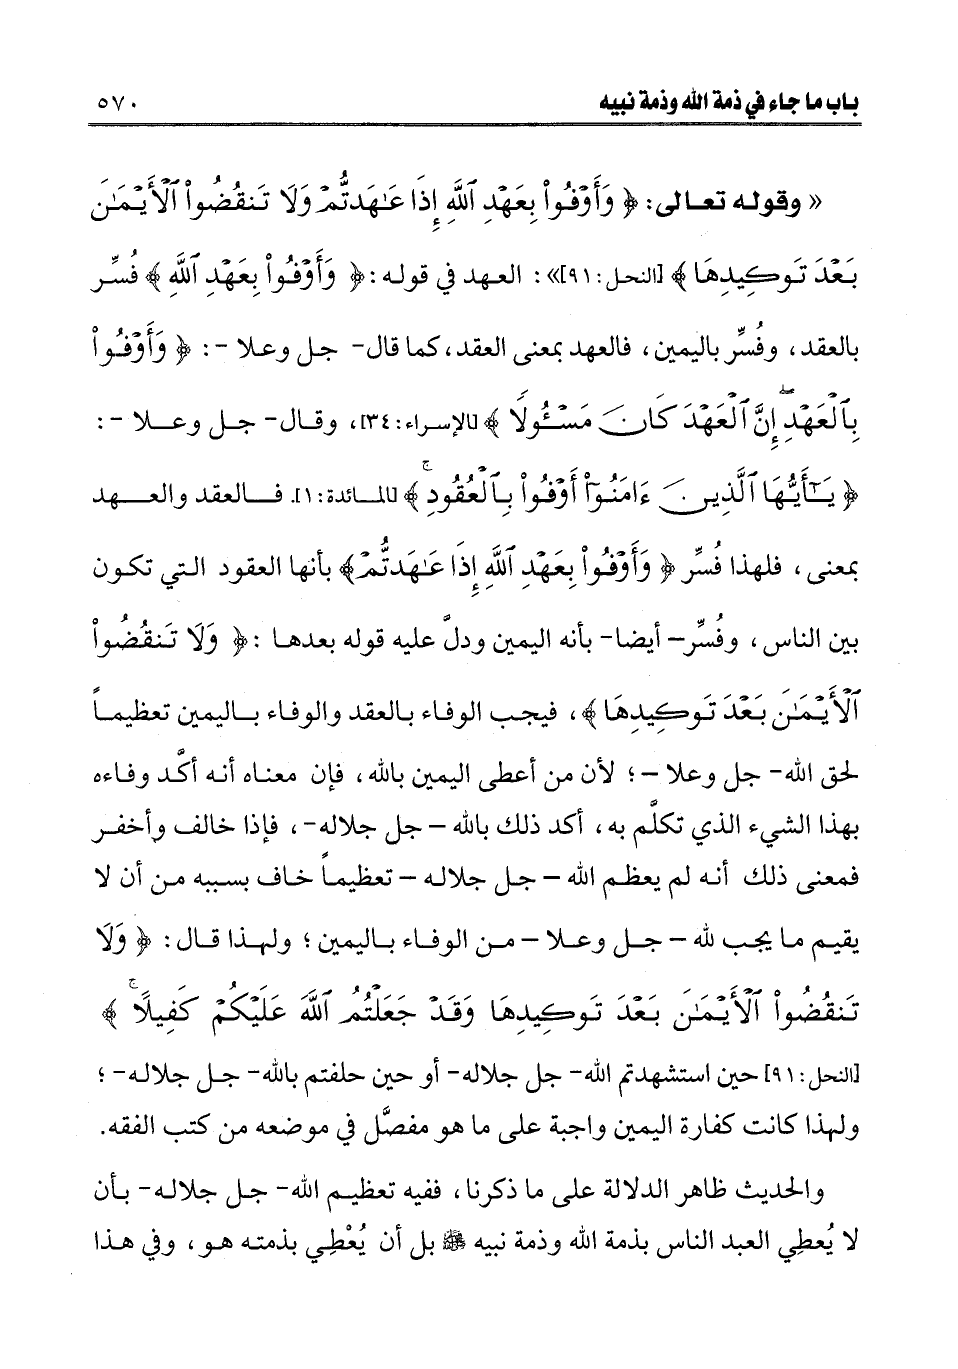 باب ما جاء في ذمة الله وذمة نبيه ٥٧٠
« وقوله تعالى: ﴿ وَأَوْفُوا۟ بِعَهْدِ ٱللَّهِ إِذَا عَـٰهَدتُّمْ وَلَا تَنقُضُوا۟ ٱلْأَيْمَـٰنَ
بَعْدَ تَوْكِيدِهَا ﴾ [النحل:٩١]»: العهد في قوله: ﴿ وَأَوْفُوا۟ بِعَهْدِ ٱللَّهِ ﴾ فُسِّر
بالعقد، وفُسِّر باليمين، فالعهد بمعنى العقد، كما قال- جل وعلا -: ﴿ وَأَوْفُوا۟
بِٱلْعَهْدِ ۖ إِنَّ ٱلْعَهْدَ كَانَ مَسْـُٔولًا ﴾ [الإسراء:٣٤]، وقال- جل وعلا -:
﴿ يَـٰٓأَيُّهَا ٱلَّذِينَ ءَامَنُوٓا۟ أَوْفُوا۟ بِٱلْعُقُودِ ۚ ﴾ [المائدة:١]. فالعقد والعهد
بمعنى، فلهذا فُسِّر ﴿ وَأَوْفُوا۟ بِعَهْدِ ٱللَّهِ إِذَا عَـٰهَدتُّمْ﴾ بأنها العقود التي تكون
بين الناس، وفُسِّر- أيضا- بأنه اليمين ودلَّ عليه قوله بعدها :﴿ وَلَا تَنقُضُوا۟
ٱلْأَيْمَـٰنَ بَعْدَ تَوْكِيدِهَا ﴾، فيجب الوفاء بالعقد والوفاء باليمين تعظيماً
لحق الله- جل وعلا -؛ لأن من أعطى اليمين بالله، فإن معناه أنه أكَّد وفاءه
بهذا الشيء الذي تكلَّم به، أكد ذلك بالله - جل جلاله-، فإذا خالف وأخفر
فمعنى ذلك أنه لم يعظم الله - جل جلاله - تعظيماً خاف بسببه من أن لا
يقيم ما يجب لله - جل وعلا - من الوفاء باليمين؛ ولهذا قال: ﴿ وَلَا
تَنقُضُوا۟ ٱلْأَيْمَـٰنَ بَعْدَ تَوْكِيدِهَا وَقَدْ جَعَلْتُمُ ٱللَّهَ عَلَيْكُمْ كَفِيلًا ۚ ﴾
[النحل:٩١] حين استشهدتم الله- جل جلاله- أو حين حلفتم بالله- جل جلاله-؛
ولهذا كانت كفارة اليمين واجبة على ما هو مفصَّل في موضعه من كتب الفقه.
والحديث ظاهر الدلالة على ما ذكرنا، ففيه تعظيم الله- جل جلاله- بأن
لا يُعطِي العبد الناس بذمة الله وذمة نبيه ﷺ بل أن يُعْطِي بذمته هو، وفي هذا